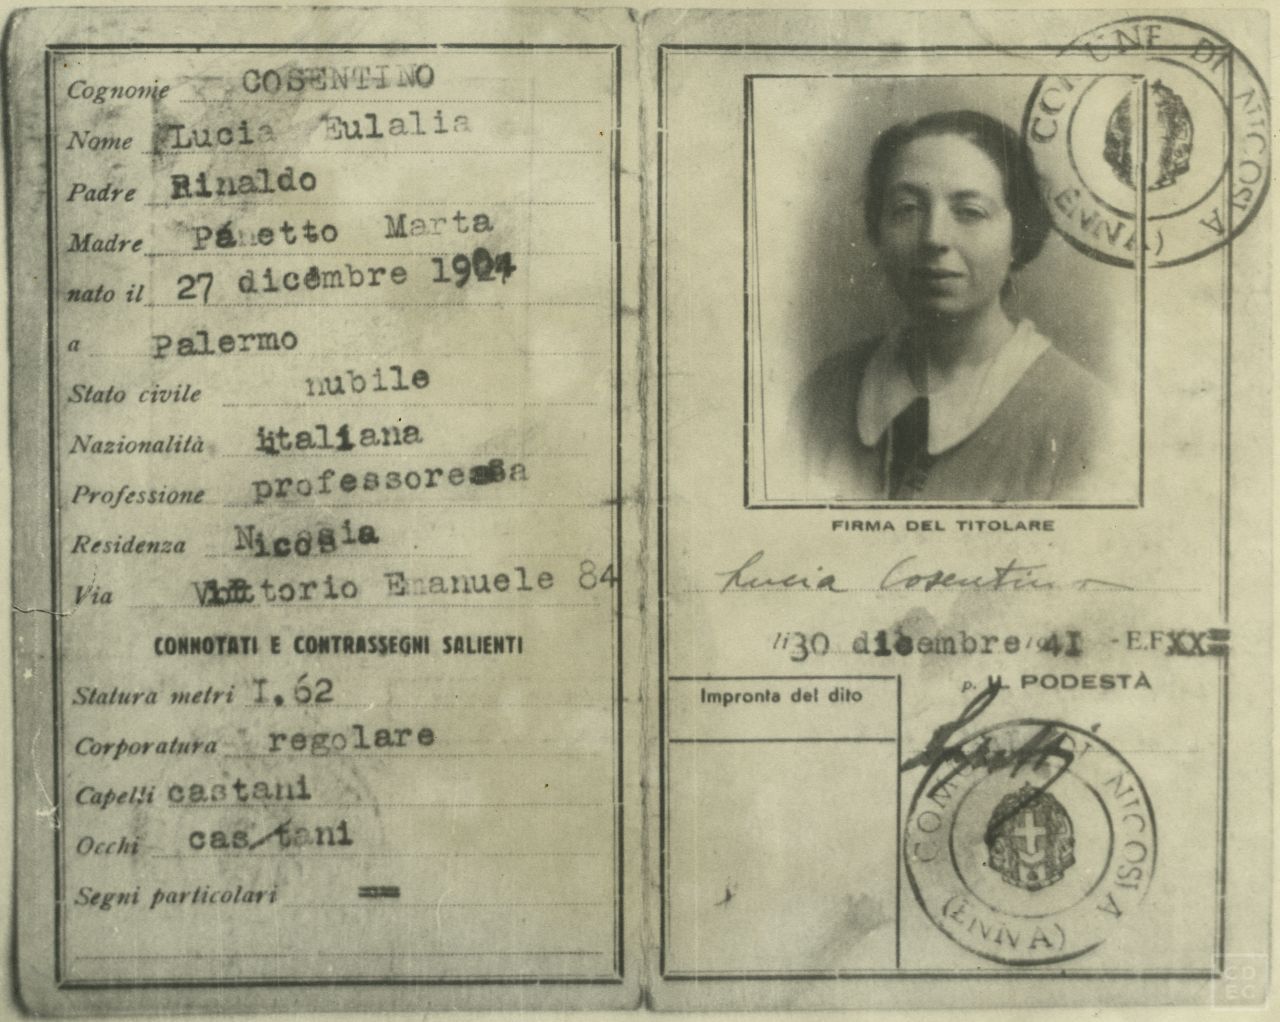 Cognome COSENTINO
Nome Lucia Eulalia
Padre Rinaldo
Madre Panetto Marta
nato il 27 dicembre 1904
a Palermo
Stato civile nubile
Nazionalità italiana
Professione professoressa
Residenza Nicosia
Via Vittorio Emanuele 84
CONNOTATI E CONTRASSEGNI SALIENTI
Statura metri I.62
Corporatura regolare
Capelli castani
Occhi castani
Segni particolari =
COMUNE DI NICOSIA
(ENNA)
FIRMA DEL TITOLARE
Lucia Cosentino
li 30 dicembre 1941 - E.F XX=
p. IL PODESTÀ
Impronta del dito
COMUNE DI NICOSIA
(ENNA)
CD
EC